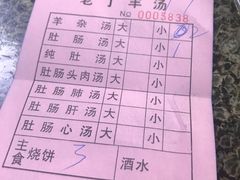 老丁羊汤
No 0003838
羊杂汤 大 小
肚肠汤 大 小
纯肚汤 大 小
肚肠头肉汤 大 小
肚肠肺汤 大 小
肚肠肝汤 大 小
肚肠心汤 大 小
主食 烧饼 3 酒水